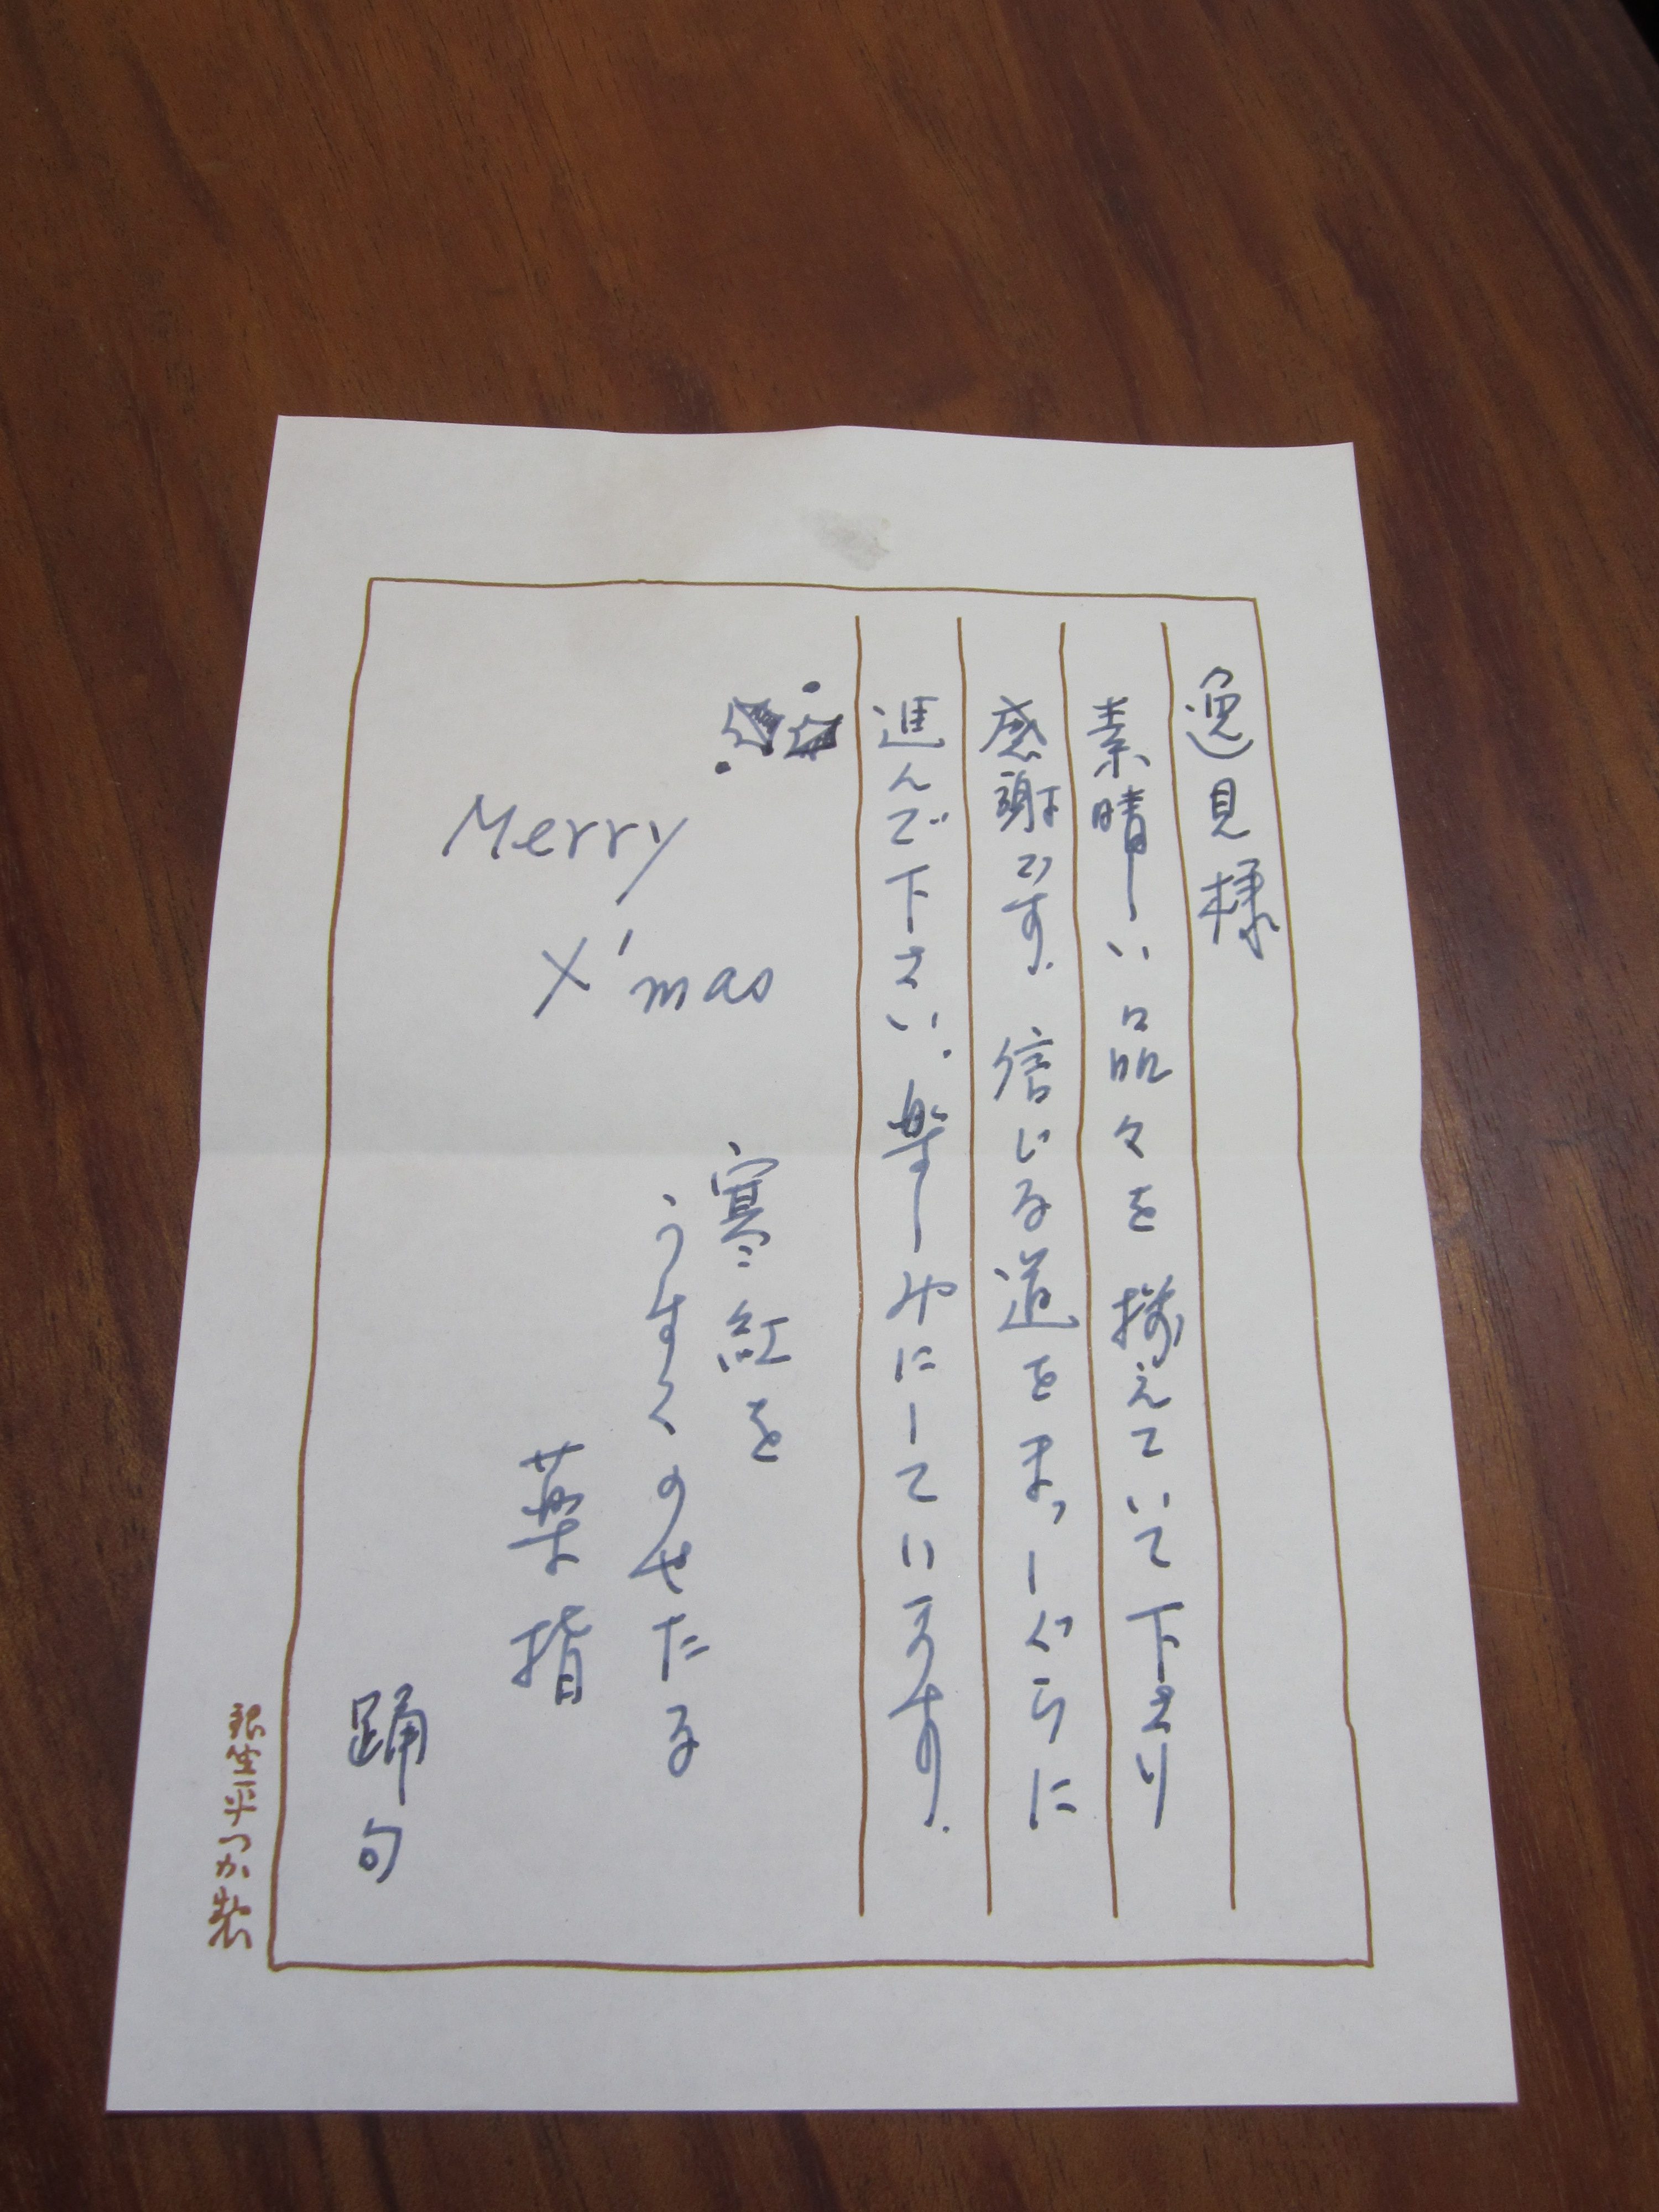 逸見様
素晴しい品々を揃えていて下さり
感謝です. 信じる道をまっしぐらに
進んで下さい. 楽しみにしています.
Merry
X'mas
寒紅を
うすくのせたる
薬指
踊句
銀座平つか製